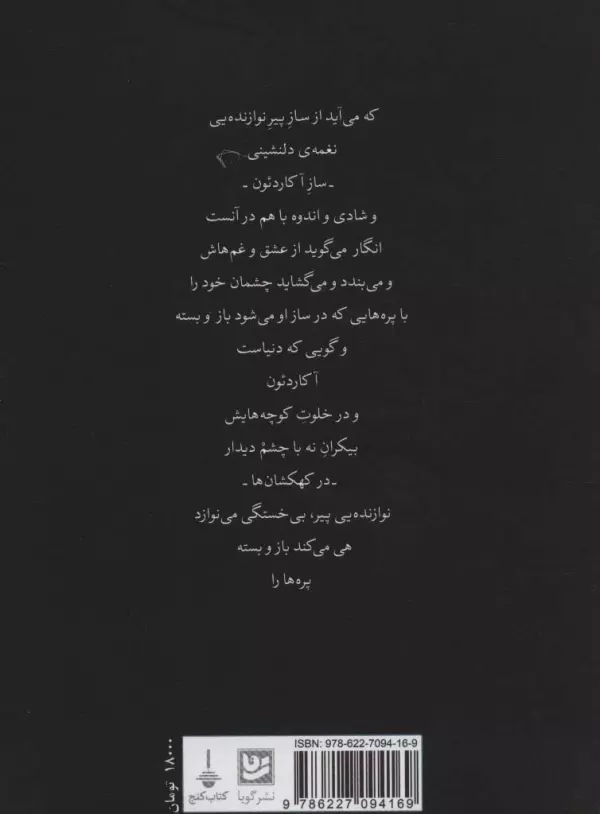 که می‌آید از سازِ پیرِ نوازنده‌یی
نغمه‌ی دلنشینی
ـ سازِ آکاردئون ـ
و شادی و اندوه با هم در آنست
انگار می‌گوید از عشق و غم‌هاش
و می‌بندد و می‌گشاید چشمان خود را
با پره‌هایی که در ساز او می‌شود باز و بسته
و گویی که دنیاست
آکاردئون
و در خلوتِ کوچه‌هایش
بیکرانِ نه با چشمْ دیدار
ـ در کهکشان‌ها ـ
نوازنده‌یی پیر، بی‌خستگی می‌نوازد
هی می‌کند باز و بسته
پره‌ها را
۱۸۰۰۰ تومان
کتاب کنج
نشر گویا
ISBN: 978-622-7094-16-9
9 786227 094169